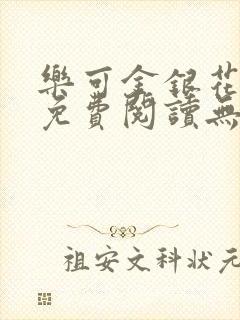 樂可金銀花
免費閱讀無
祖安文科狀元